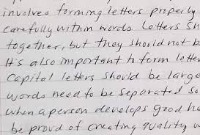 involves forming letters properly
carefully within words. Letters sh
together, but they should not b
It's also important to form letter
Capital letters should be large
words need to be separated so
when a person develops good ha
be proud of creating quality w